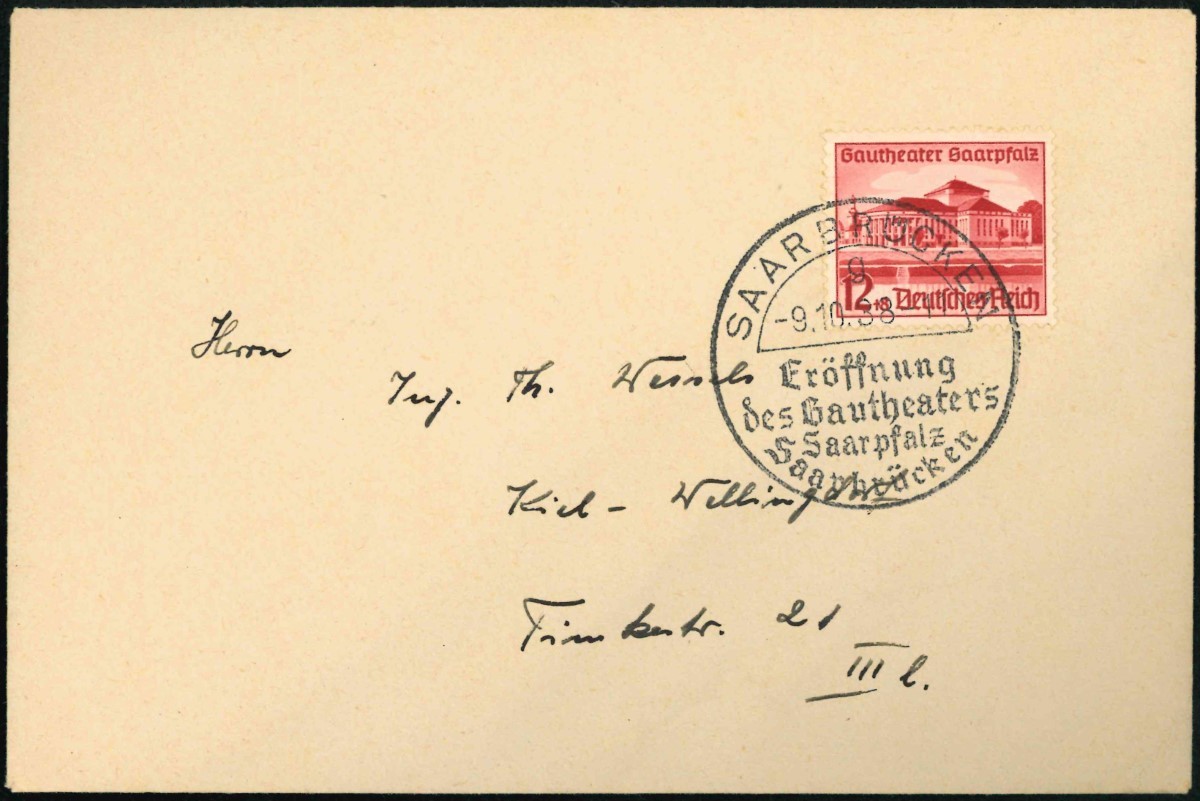 Gautheater Saarpfalz
12+18 Deutsches Reich
SAARBRÜCKEN
g
-9.10.38
Eröffnung
des Gautheaters
Saarpfalz
Saarbrücken
Herrn
Ing. Th. Wessels
Kiel - Wellingdorf
Timkestr. 21
III l.